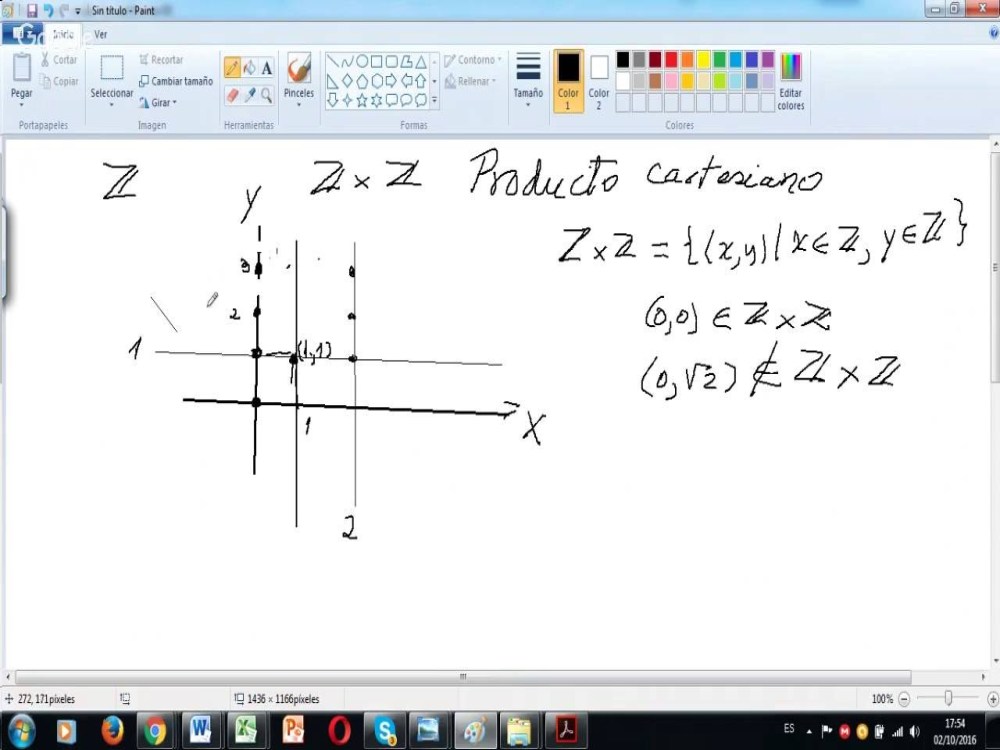 Sin título - Paint
Inicio Ver
Pegar
Cortar
Copiar
Portapapeles
Seleccionar
Recortar
Cambiar tamaño
Girar
Imagen
A
Herramientas
Pinceles
Contorno
Rellenar
Formas
Tamaño
Color 1
Color 2
Editar colores
Colores
ℤ
y
ℤ × ℤ Producto cartesiano
ℤ × ℤ = {(x,y) / x ∈ ℤ, y ∈ ℤ}
3
2
(0,0) ∈ ℤ × ℤ
1
(1,1)
(0,√2) ∉ ℤ × ℤ
1
X
2
272, 171píxeles
1436 × 1166píxeles
100%
ES
17:54
02/10/2016